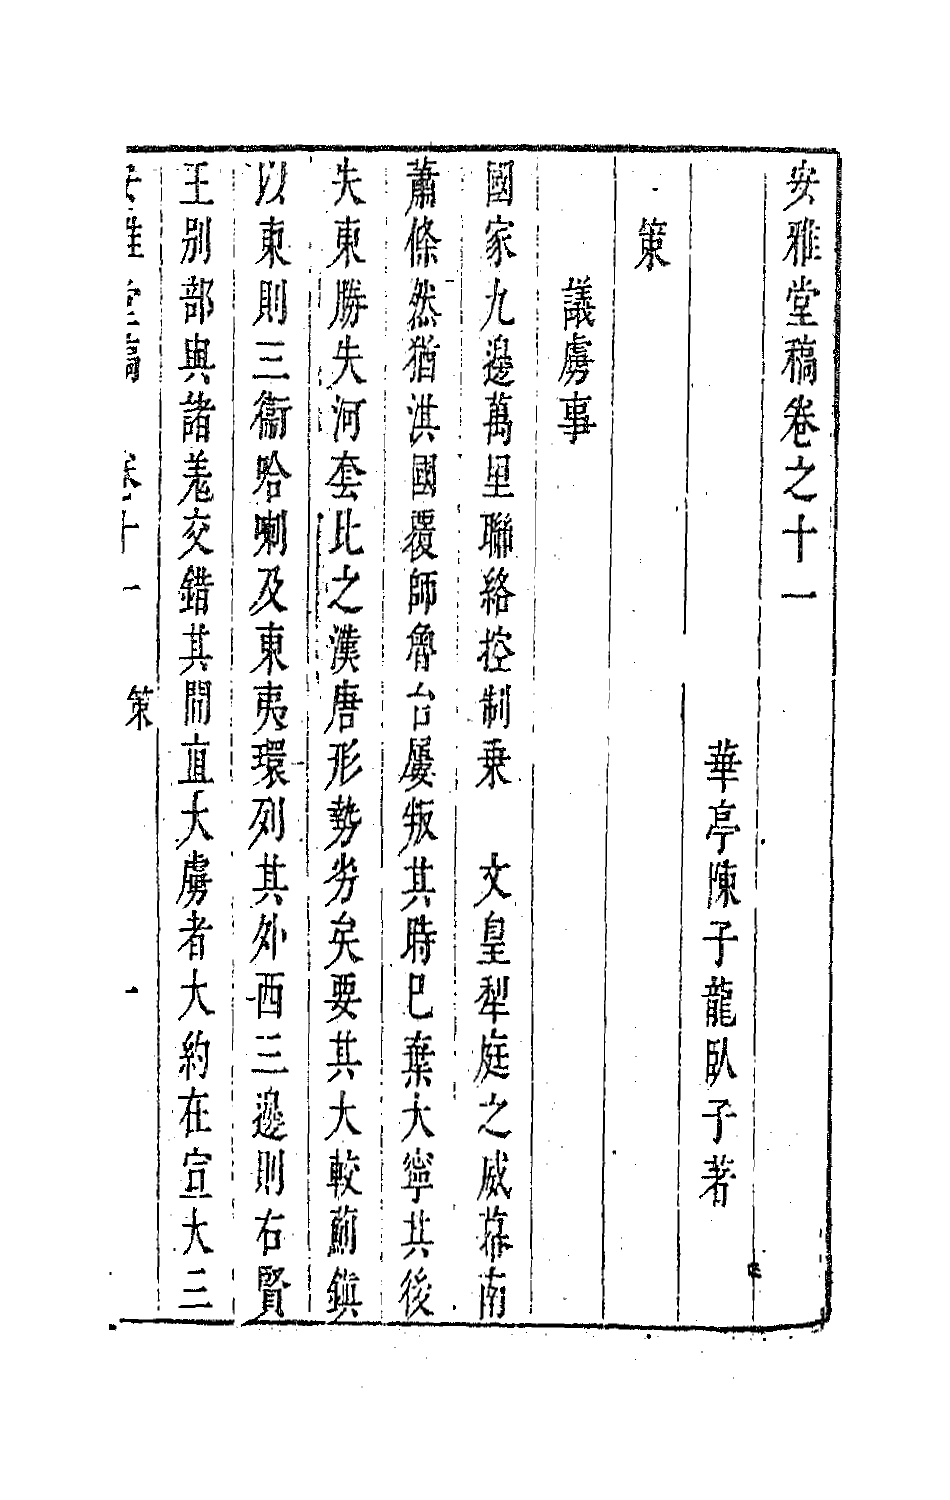 安雅堂稿卷之十一
華亭陳子龍臥子著
策
議虜事
國家九邊萬里聯絡控制乗　文皇犁庭之威幕南
蕭條然猶淇國覆師魯台屢叛其時巳棄大寧其後
失東勝失河套比之漢唐形勢劣矣要其大較薊鎮
以東則三衞哈喇及東夷環列其外西三邊則右賢
王別部與諸羗交錯其間直大虜者大約在宣大三
安雅堂稿　卷十一　策　一